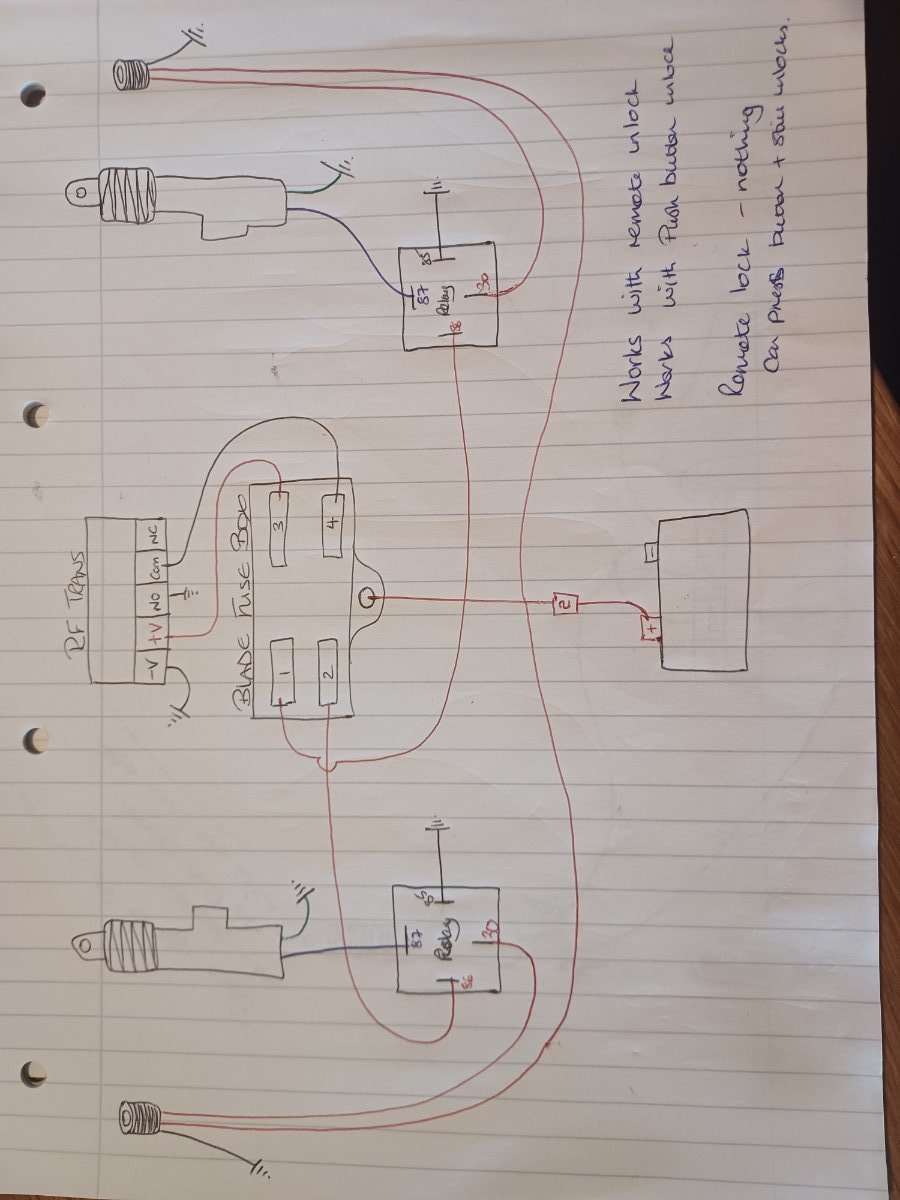 RF TRANS
-V +V NO Com NC
BLADE FUSE BOX
1 3
2 4
87 85
Relay
86 30
87 85
Relay
86 30
+ -
Works with remote unlock
Works with Push button unlock
Remote lock - nothing
Can press button + still unlocks.